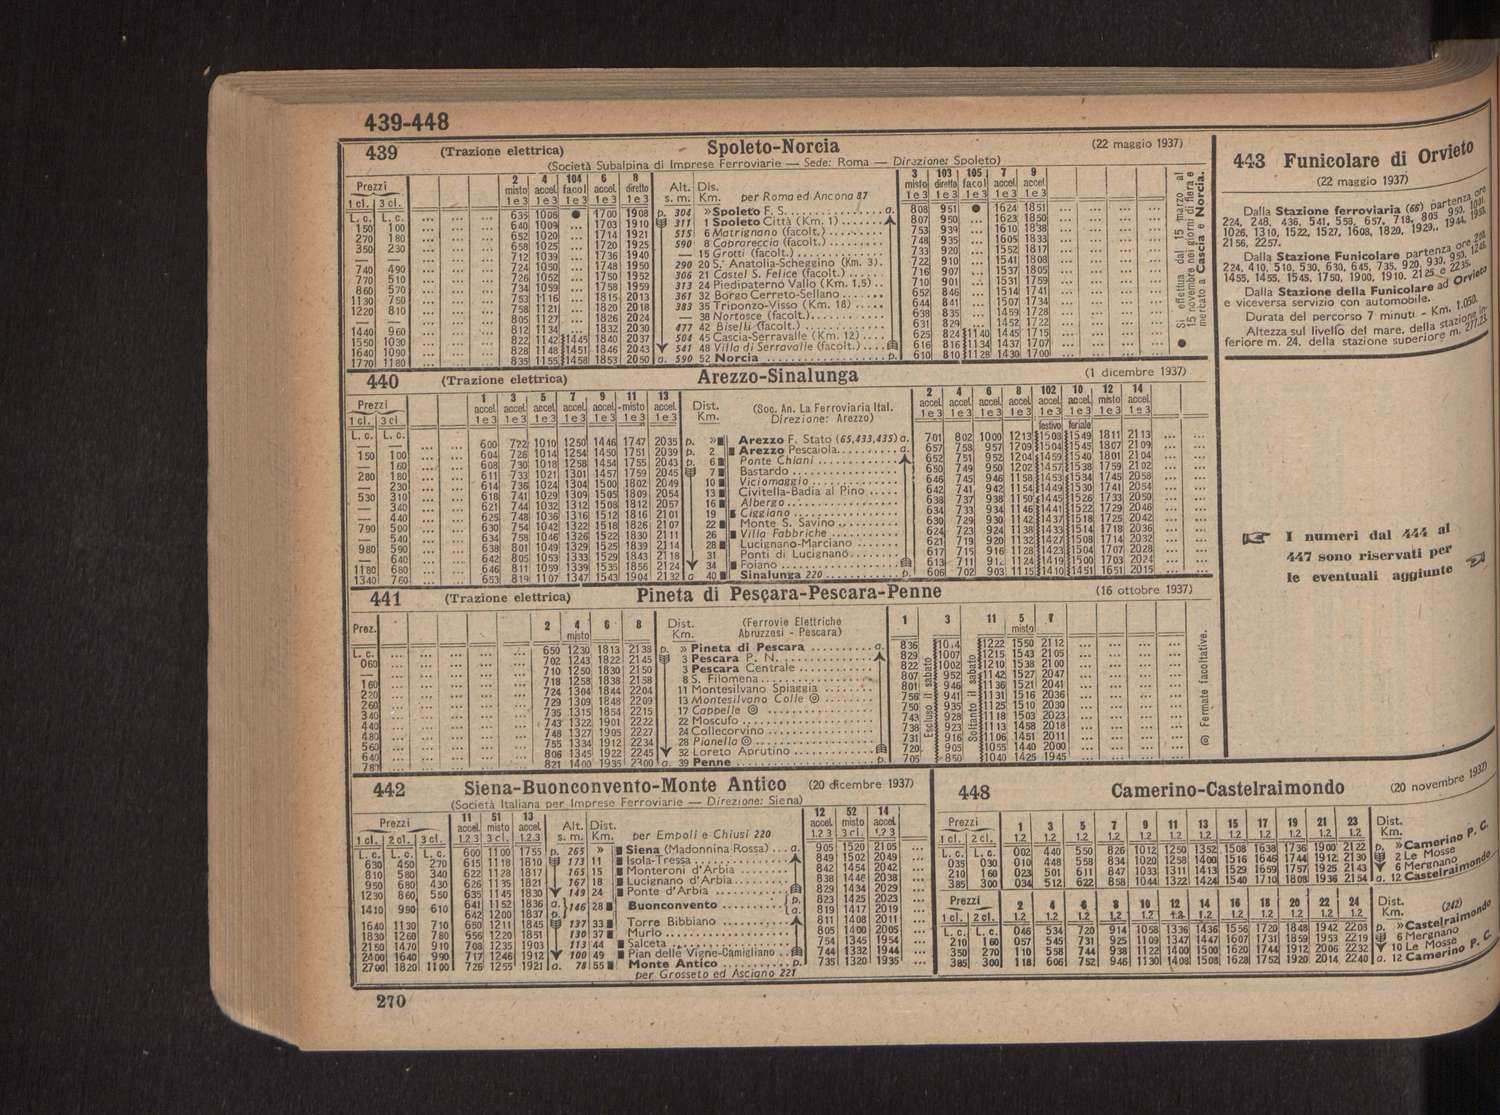 439-448
439 (Trazione elettrica) Spoleto-Norcia (22 maggio 1937)
(Società Subalpina di Imprese Ferroviarie — Sede: Roma — Direzione: Spoleto)
Prezzi
1 cl. 3 cl.
2 4 104 6 8
misto accel. facol accel. diretto
1 e 3 1 e 3 1 e 3 1 e 3 1 e 3
Alt. s. m. Dis. Km. per Roma ed Ancona 87
3 103 105 7 9
misto diretto facol accel. accel.
1 e 3 1 e 3 1 e 3 1 e 3 1 e 3
L. c. L. c. ... ... ... 635 1006 ● 1700 1908 p. 304 » Spoleto F. S. a. 808 951 ● 1624 1851
150 100 ... ... ... 640 1009 ... 1703 1910 311 1 Spoleto Città (Km. 1) 807 950 ... 1623 1850
270 180 ... ... ... 652 1020 ... 1714 1921 515 6 Matrignano (facolt.) 753 939 ... 1610 1838
350 230 ... ... ... 658 1025 ... 1720 1925 590 8 Caprareccia (facolt.) 748 935 ... 1605 1833
— — ... ... ... 712 1039 ... 1736 1940 — 15 Grotti (facolt.) 733 920 ... 1552 1817
740 490 ... ... ... 724 1050 ... 1748 1950 290 20 S.' Anatolia-Scheggino (Km. 3) 722 910 ... 1541 1808
770 510 ... ... ... 726 1052 ... 1750 1952 306 21 Castel S. Felice (facolt.) 716 907 ... 1537 1805
860 570 ... ... ... 734 1059 ... 1758 1959 313 24 Piedipaterno Vallo (Km. 1,5) 710 901 ... 1531 1759
1130 750 ... ... ... 753 1116 ... 1815 2013 361 32 Borgo Cerreto-Sellano 652 846 ... 1514 1741
1220 810 ... ... ... 758 1121 ... 1820 2018 383 35 Triponzo-Visso (Km. 18) 644 841 ... 1507 1734
— — ... ... ... 805 1127 ... 1826 2024 — 38 Nortosce (facolt.) 638 835 ... 1459 1728
1440 960 ... ... ... 812 1134 ... 1832 2030 477 42 Biselli (facolt.) 631 829 ... 1452 1722
1550 1030 ... ... ... 822 1142 1445 1840 2037 504 45 Cascia-Serravalle (Km. 12) 625 824 1140 1445 1715
1640 1090 ... ... ... 828 1148 1451 1846 2043 541 48 Villa di Serravalle (facolt.) 616 816 1134 1437 1707
1770 1180 ... ... ... 835 1155 1458 1853 2050 a. 590 52 Norcia p. 610 810 1128 1430 1700
● Si effettua dal 15 marzo al
15 novembre nei giorni di fiera e
mercato a Cascia e Norcia.
440 (Trazione elettrica) Arezzo-Sinalunga (1 dicembre 1937)
Prezzi
1 cl. 3 cl
1 3 5 7 9 11 13
accel. accel. accel. accel. accel. misto accel.
1 e 3 1 e 3 1 e 3 1 e 3 1 e 3 1 e 3 1 e 3
Dist. Km. (Soc. An. La Ferroviaria Ital.
Direzione: Arezzo)
2 4 6 8 102 10 12 14
accel. accel. accel. accel. accel. accel. misto accel.
1 e 3 1 e 3 1 e 3 1 e 3 1 e 3 1 e 3 1 e 3 1 e 3
festivo feriale
L. c. L. c.
— — 600 722 1010 1250 1446 1747 2035 p. » Arezzo F. Stato (65,433,435) a. 701 802 1000 1213 1508 1549 1811 2113
150 100 604 726 1014 1254 1450 1751 2039 p. 2 Arezzo Pescaiola a. 657 758 957 1209 1504 1545 1807 2109
— 160 608 730 1018 1258 1454 1755 2043 p. 6 Ponte Chiani 652 751 952 1204 1459 1540 1801 2104
280 180 611 733 1021 1301 1457 1759 2045 7 Bastardo 650 749 950 1202 1457 1538 1759 2102
— 230 614 736 1024 1304 1500 1802 2049 10 Viciomaggio 646 745 946 1158 1453 1534 1745 2058
530 310 618 741 1029 1309 1505 1809 2054 13 Civitella-Badia al Pino 642 741 942 1154 1449 1530 1741 2054
— 340 621 744 1032 1312 1508 1812 2057 16 Albergo 638 737 938 1150 1445 1526 1733 2050
— 440 625 748 1036 1316 1512 1816 2101 19 Ciggiano 634 733 934 1146 1441 1522 1729 2046
790 500 630 754 1042 1322 1518 1826 2107 22 Monte S. Savino 630 729 930 1142 1437 1518 1725 2042
— 540 634 758 1046 1326 1522 1830 2111 26 Villa Fabbriche 624 723 924 1138 1433 1514 1718 2036
980 590 638 801 1049 1329 1525 1839 2114 28 Lucignano-Marciano 621 719 920 1132 1427 1508 1714 2032
— 640 642 805 1053 1333 1529 1843 2118 31 Ponti di Lucignano 617 715 916 1128 1423 1504 1707 2028
1180 680 646 811 1059 1339 1535 1856 2124 34 Foiano 613 711 912 1124 1419 1500 1703 2024
1340 760 653 819 1107 1347 1543 1904 2132 a 40 Sinalunga 220 p. 606 702 903 1115 1410 1451 1651 2015
441 (Trazione elettrica) Pineta di Pescara-Pescara-Penne (16 ottobre 1937)
Prez. 2 4 6 8
misto
Dist. Km. (Ferrovie Elettriche
Abruzzesi - Pescara)
1 3 11 5 7
misto
L. c. 650 1230 1813 2138 p. » Pineta di Pescara a. 836 1222 1550 2112
060 702 1243 1822 2145 3 Pescara P. N. 829 1007 1215 1543 2105
— 710 1250 1830 2150 3 Pescara Centrale 822 1002 1210 1538 2100
160 718 1258 1838 2158 8 S. Filomena 807 952 1142 1527 2047
220 724 1304 1844 2204 11 Montesilvano Spiaggia 801 946 1136 1521 2041
260 729 1309 1848 2209 13 Montesilvano Colle ◎ 756 941 1131 1516 2036
340 735 1315 1854 2215 17 Cappelle ◎ 750 935 1125 1510 2030
440 743 1322 1901 2222 22 Moscufo 743 928 1118 1503 2023
480 748 1327 1905 2227 24 Collecorvino 738 923 1113 1458 2018
560 755 1334 1912 2234 28 Pianella ◎ 731 916 1106 1451 2011
640 806 1345 1922 2245 32 Loreto Aprutino 720 905 1055 1440 2000
780 821 1400 1935 2300 a. 39 Penne p. 705 850 1040 1425 1945
Escluso il sabato
Soltanto il sabato
◎ Fermate facoltative.
442 Siena-Buonconvento-Monte Antico (20 dicembre 1937)
(Società Italiana per Imprese Ferroviarie — Direzione: Siena)
Prezzi
1 cl. 2 cl. 3 cl.
11 51 13
accel. misto accel.
1.2 3 3 cl. 1.2.3
Alt. s. m. Dist. Km. per Empoli e Chiusi 220
12 52 14
accel. misto accel.
1.2 3 3 cl. 1,2 3
L. c. L. c. L. c. 600 1100 1755 p. 265 » Siena (Madonnina Rossa) a. 905 1520 2105 ...
630 450 270 615 1118 1810 173 11 Isola-Tressa 849 1502 2049 ...
810 580 340 622 1128 1817 165 15 Monteroni d'Arbia 842 1454 2042 ...
950 680 430 626 1135 1821 167 18 Lucignano d'Arbia 838 1446 2038 ...
1230 860 550 635 1145 1830 149 24 Ponte d'Arbia 829 1434 2029 ...
1410 990 610 641 1152 1836 a. 146 28 Buonconvento p. 823 1425 2023 ...
642 1200 1837 p. a. 819 1417 2019 ...
1640 1130 710 650 1211 1845 137 33 Torre Bibbiano 811 1408 2011 ...
1830 1260 780 556 1220 1851 130 37 Murlo 805 1400 2005 ...
2150 1470 910 708 1235 1903 113 44 Salceta 754 1345 1954 ...
2400 1640 990 717 1246 1912 100 49 Pian delle Vigne-Camigliano 744 1332 1944 ...
2700 1820 1100 726 1255 1921 a. 78 55 Monte Antico p. 735 1320 1935 ...
per Grosseto ed Asciano 221
443 Funicolare di Orvieto
(22 maggio 1937)
Dalla Stazione ferroviaria (65) partenza ore
224, 248, 436, 541, 558, 657, 718, 805 950, 1001,
1026, 1310, 1522, 1527, 1608, 1820, 1929, 1944, 1953,
2156, 2257.
Dalla Stazione Funicolare partenza ore 208,
224, 410, 510, 530, 630, 645, 735, 920, 930, 950, 1245,
1455, 1455, 1545, 1750, 1900, 1910, 2125 e 2235.
Dalla Stazione della Funicolare ad Orvieto
e viceversa servizio con automobile.
Durata del percorso 7 minuti - Km. 1,050.
Altezza sul livello del mare, della stazione in-
feriore m. 24, della stazione superiore m. 277,25
I numeri dal 444 al
447 sono riservati per
le eventuali aggiunte
448 Camerino-Castelraimondo (20 novembre 1937)
Prezzi
1 cl. 2 cl.
1 3 5 7 9 11 13 15 17 19 21 23 Dist. Km.
1.2 1.2 1.2 1.2 1.2 1.2 1.2 1.2 1.2 1.2 1.2 1.2
L. c. L. c. 002 440 550 826 1012 1250 1352 1508 1638 1736 1900 2122 p. » Camerino P. C.
035 030 010 448 558 834 1020 1258 1400 1516 1646 1744 1912 2130 2 Le Mosse
210 160 023 501 611 847 1033 1311 1413 1529 1659 1757 1925 2143 6 Mergnano
385 300 034 512 622 858 1044 1322 1424 1540 1710 1808 1936 2154 a. 12 Castelraimondo
Prezzi
1 cl. 2 cl.
2 4 6 8 10 12 14 16 18 20 22 24 Dist. Km. (242)
1.2 1.2 1.2 1.2 1.2 1.2 1.2 1.2 1.2 1.2 1.2 1.2
L. c. L. c. 046 534 720 914 1058 1336 1436 1556 1720 1848 1942 2208 p. » Castelraimondo
210 160 057 545 731 925 1109 1347 1447 1607 1731 1859 1953 2219 6 Mergnano
350 270 110 558 744 938 1122 1400 1500 1620 1744 1912 2006 2232 10 Le Mosse
385 300 118 606 752 946 1130 1408 1508 1628 1752 1920 2014 2240 a. 12 Camerino P. C.
270